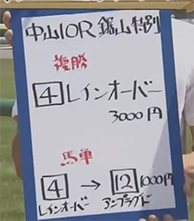 中山10R 鋸山特別
複勝
4 レインオーバー
3000円
馬単
4 → 12 1000円
レインオーバー アンプラグド